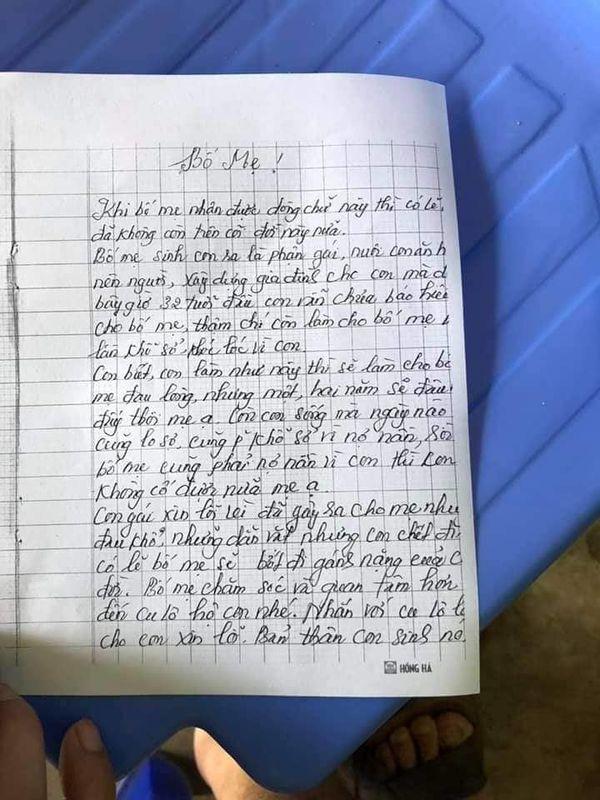 Bố Mẹ!
Khi bố mẹ nhận được dòng chữ này thì có lẽ
đã không còn trên cõi đời này nữa.
Bố mẹ sinh con ra là phận gái, nuôi con ăn h
nên người, xây dựng gia đình cho con mà
bây giờ 32 tuổi đầu con vẫn chưa báo hiế
cho bố mẹ, thậm chí còn làm cho bố mẹ
lần khổ sở, khóc lóc vì con.
Con biết, con làm như này thì sẽ làm cho bố
mẹ đau lòng, nhưng một, hai năm sẽ đâu
đấy thôi mẹ ạ. Còn con sống mà ngày nào
cũng lo sợ, cũng p' khổ sở vì nợ nần,
bố mẹ cũng phải nợ nần vì con thì con
không cố được nữa mẹ ạ.
Con gái xin lỗi lại đã gây sa cho mẹ như
đau khổ những dằn vặt nhưng con chết đi
có lẽ bố mẹ sẽ bớt đi gánh nặng cuả c
đời. Bố mẹ chăm sóc và quan tâm hơn
đến cu lô hộ con nhé. Nhắn với cu lô
cho con xin lỗi. Bản thân con sinh nó
HỒNG HÀ